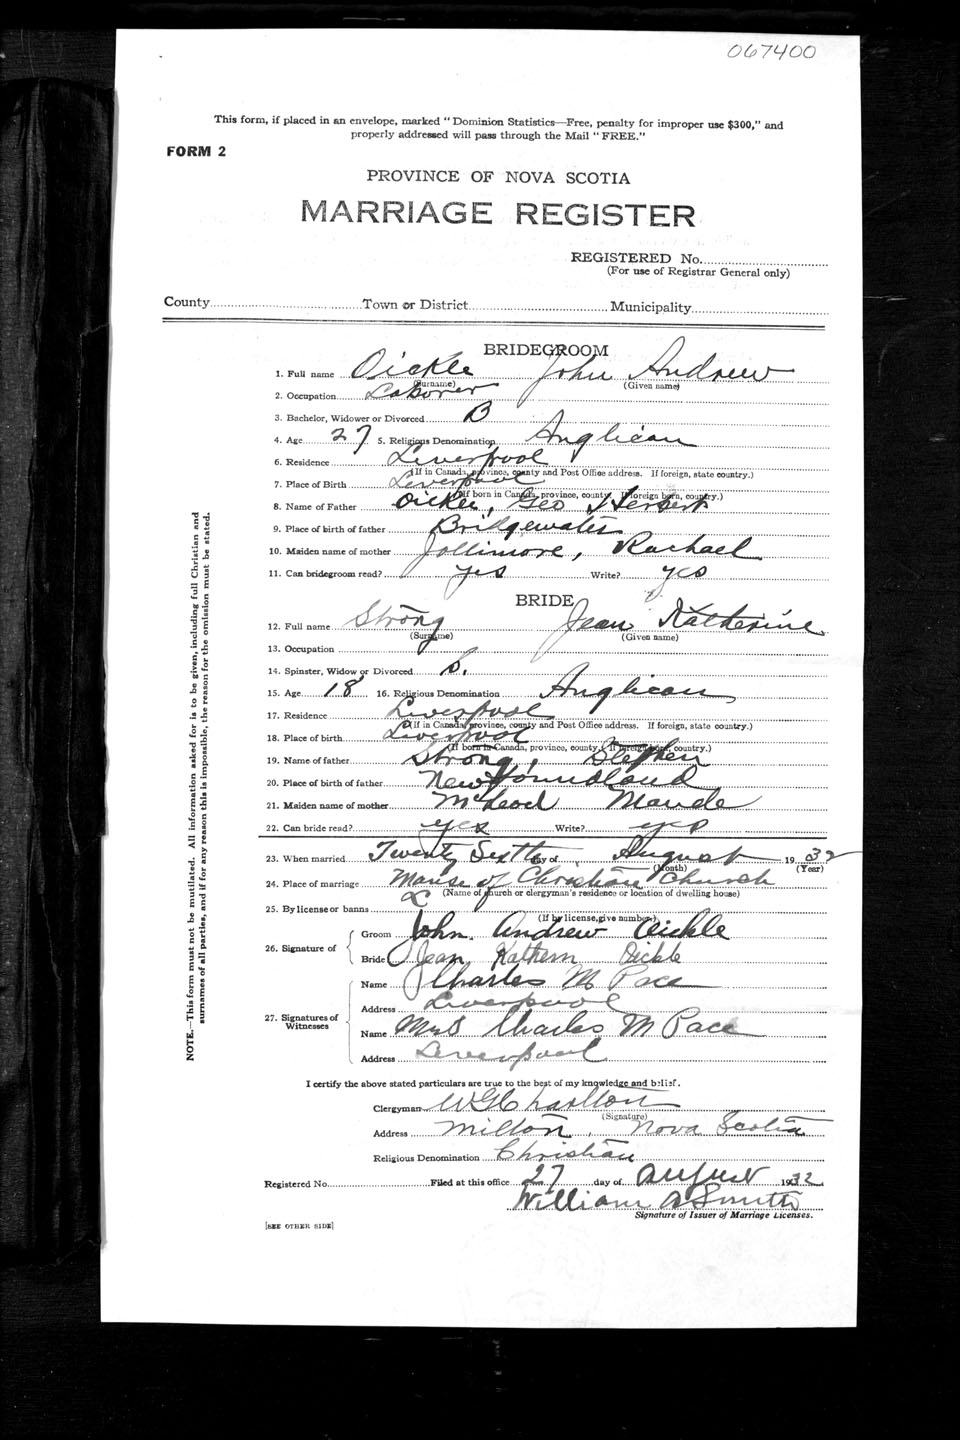 067400
This form, if placed in an envelope, marked "Dominion Statistics—Free, penalty for improper use $300," and
properly addressed will pass through the Mail "FREE."
FORM 2
PROVINCE OF NOVA SCOTIA
MARRIAGE REGISTER
REGISTERED No.
(For use of Registrar General only)
County Town or District Municipality
BRIDEGROOM
1. Full name Oickle John Andrew
(Surname) (Given name)
2. Occupation Laborer
3. Bachelor, Widower or Divorced B
4. Age 27 5. Religious Denomination Anglican
6. Residence Liverpool
(If in Canada, province, county and Post Office address. If foreign, state country.)
7. Place of Birth Liverpool
(If born in Canada, province, county. If foreign born, country.)
8. Name of Father Oickle, Geo Herbert
9. Place of birth of father Bridgewater
10. Maiden name of mother Jollimore, Rachael
11. Can bridegroom read? yes Write? yes
BRIDE
12. Full name Strong Jean Katherine
(Surname) (Given name)
13. Occupation
14. Spinster, Widow or Divorced S.
15. Age 18 16. Religious Denomination Anglican
17. Residence Liverpool
(If in Canada, province, county and Post Office address. If foreign, state country.)
18. Place of birth Liverpool
(If born in Canada, province, county. If foreign born, country.)
19. Name of father Strong, Stephen
20. Place of birth of father Newfoundland
21. Maiden name of mother McLeod Maude
22. Can bride read? yes Write? yes
23. When married Twenty Sixth day of August 1932
(Month) (Year)
24. Place of marriage Manse of Christian Church
(Name of church or clergyman's residence or location of dwelling house)
25. By license or banns L
(If by license, give number)
26. Signature of Groom John Andrew Oickle
Bride Jean Kathern Oickle
27. Signatures of Witnesses Name Charles M Pace
Address Liverpool
Name Mrs Charles M Pace
Address Liverpool
I certify the above stated particulars are true to the best of my knowledge and belief.
Clergyman WG Charlton
(Signature)
Address Milton, Nova Scotia
Religious Denomination Christian
Registered No. Filed at this office 27 day of August 1932
William A Smith
Signature of Issuer of Marriage Licenses.
[SEE OTHER SIDE]
NOTE.—This form must not be mutilated. All information asked for is to be given, including full Christian and
surnames of all parties, and if for any reason this is impossible, the reason for the omission must be stated.